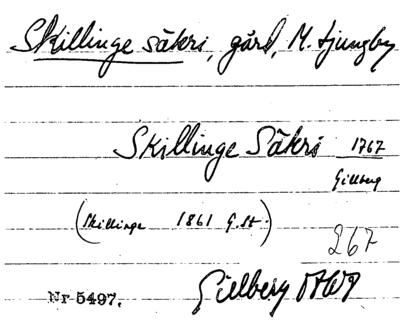 Skillinge säkri, gård, M. Ljungby
Skillinge Säkri 1767
Gillberg
(Skillinge 1861 G.St.)
267
Nr 5497. Gillberg